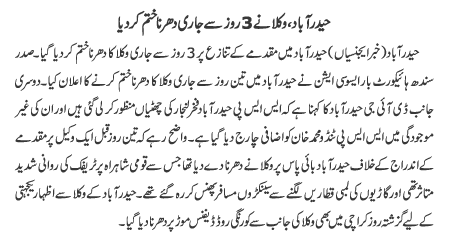 حیدرآباد، وکلا نے 3 روز سے جاری دھرنا ختم کر دیا
حیدرآباد (خبر ایجنسیاں) حیدرآباد میں مقدمے کے تنازع پر 3 روز سے جاری وکلا کا دھرنا ختم کر دیا گیا۔ صدر
سندھ ہائیکورٹ بار ایسوسی ایشن نے حیدرآباد میں تین روز سے جاری وکلا کا دھرنا ختم کرنے کا اعلان کیا۔ دوسری
جانب ڈی آئی جی حیدرآباد کا کہنا ہے کہ ایس ایس پی حیدرآباد فرخ لنجار کی چھٹیاں منظور کر لی گئی ہیں اور ان کی غیر
موجودگی میں ایس ایس پی ٹنڈو محمد خان کو اضافی چارج دیا گیا ہے۔ واضح رہے کہ تین روز قبل ایک وکیل پر مقدمے
کے اندراج کے خلاف حیدرآباد بائی پاس پر وکلا نے دھرنا دے دیا تھا جس سے قومی شاہراہ پر ٹریفک کی روانی شدید
متاثر تھی اور گاڑیوں کی لمبی قطاریں لگنے سے سینکڑوں مسافر پھنس کر رہ گئے تھے۔ حیدرآباد کے وکلا سے اظہار یکجہتی
کے لیے گزشتہ روز کراچی میں بھی وکلا کی جانب سے کورنگی روڈ ڈیفنس موڑ پر دھرنا دیا گیا۔